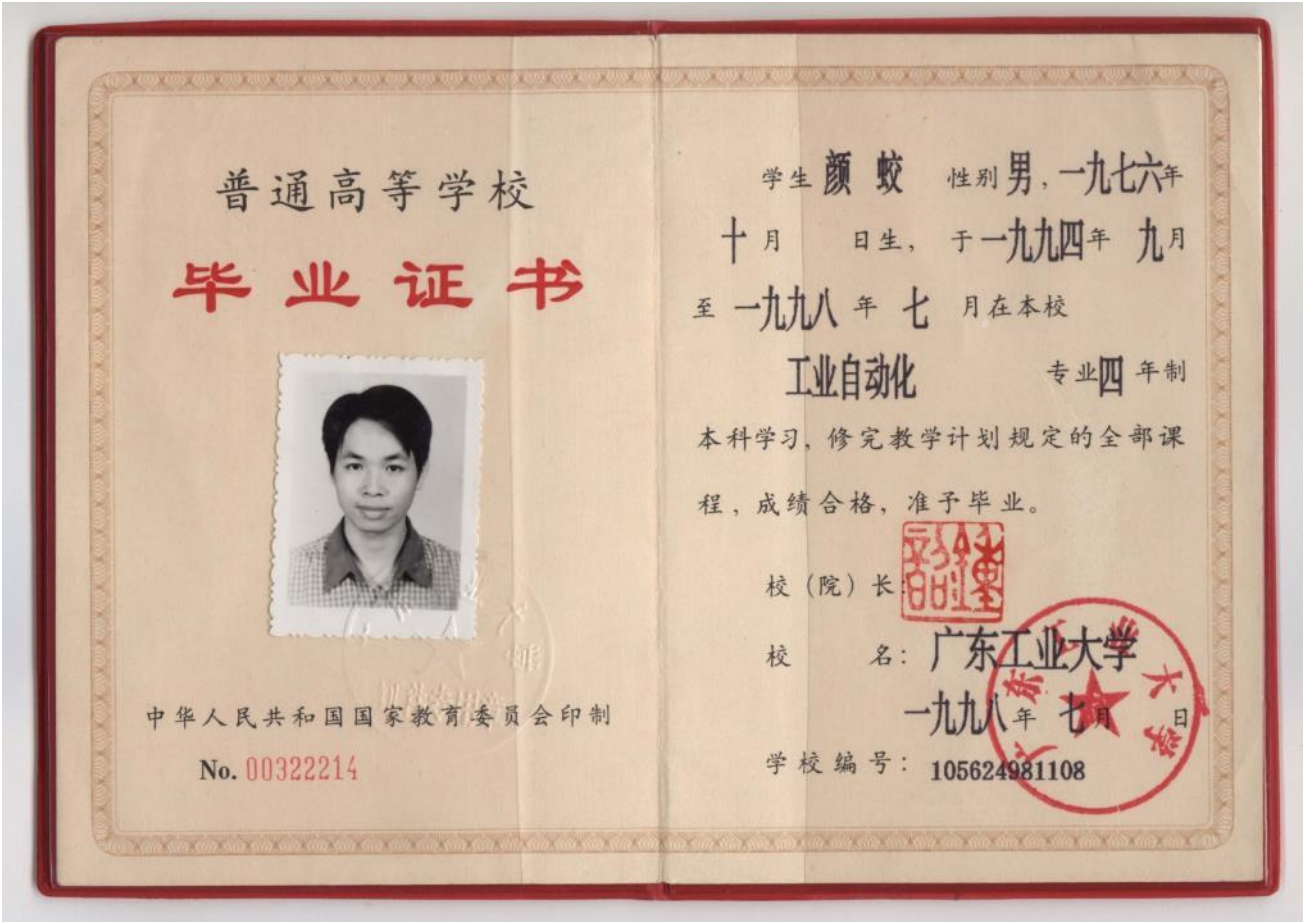 普通高等学校
毕业证书
中华人民共和国国家教育委员会印制
No. 00322214
学生 颜 蛟 性别 男，一九七六年
十月 日生，于一九九四年 九月
至 一九九八 年 七 月在本校
工业自动化 专业四 年制
本科学习，修完教学计划规定的全部课
程，成绩合格，准予毕业。
校（院）长：
校 名：广东工业大学
一九九八年 七月 日
学校编号：105624981108
广东工业大学